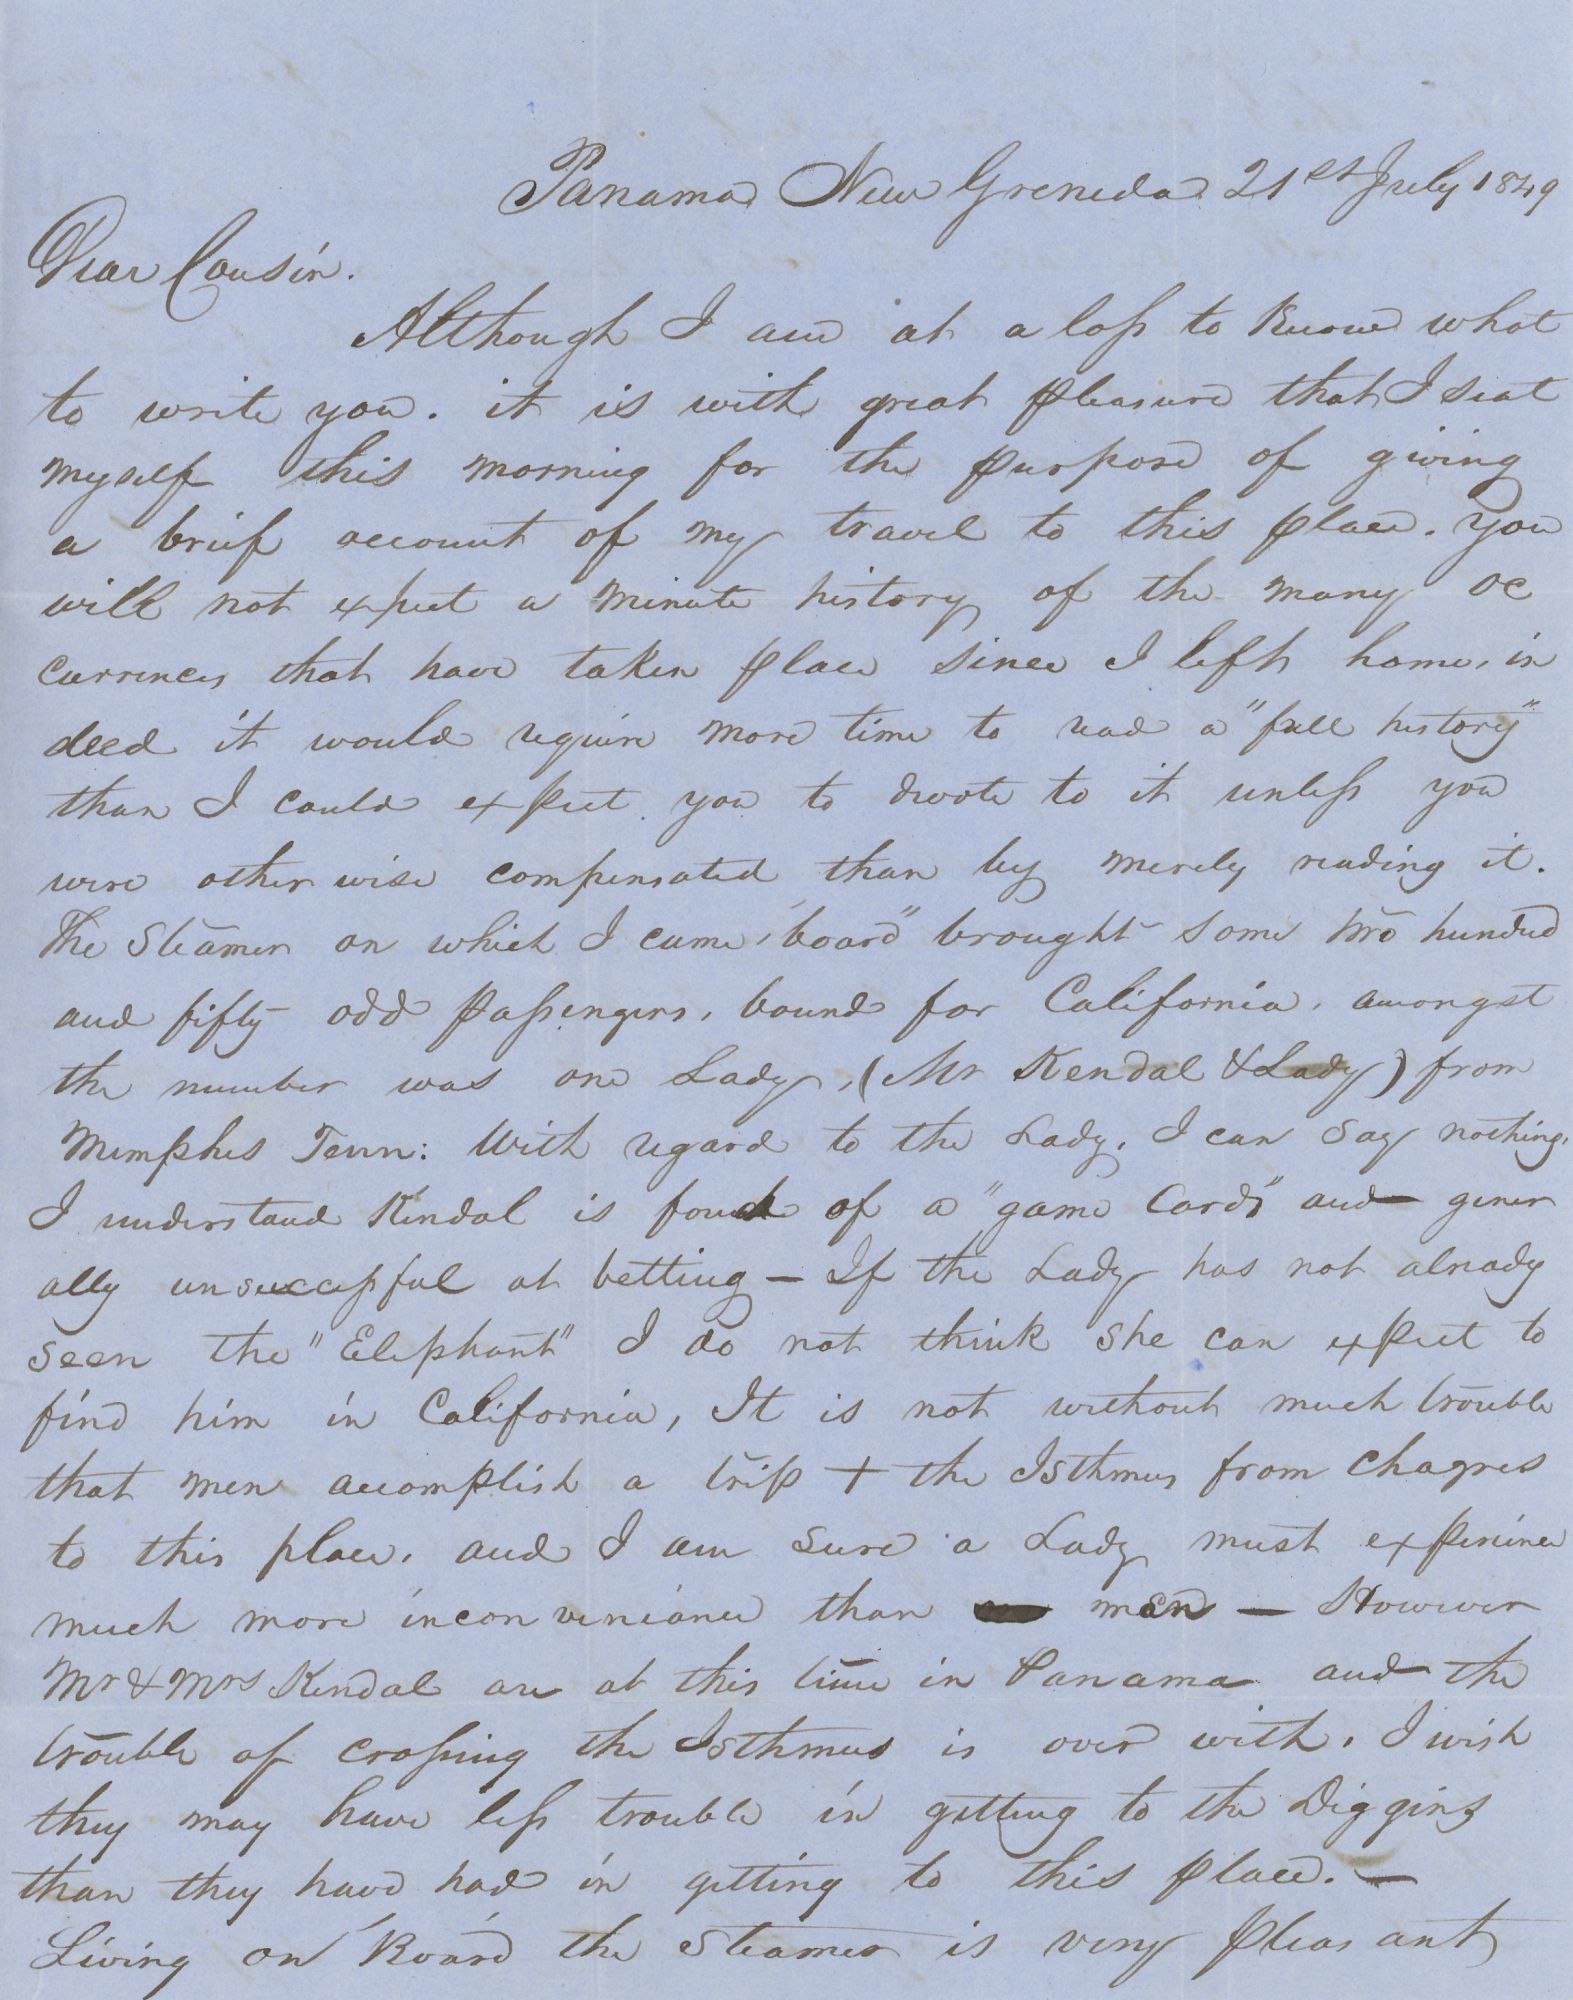 Panama New Greneda 21st July 1849
Dear Cousin.
Although I am at a loss to know what
to write you. it is with great pleasure that I seat
myself this morning for the purpose of giving
a brief account of my travel to this place. You
will not expect a minute history of the many oc
currences that have taken place since I left home, in
deed it would require more time to read a "full history"
than I could expect you to devote to it unless you
were other wise compensated than by merely reading it.
The Steamer on which I came "board" brought some two hundred
and fifty odd passengers, bound for California, amongst
the number was one Lady, (Mr Kendal & Lady) from
Memphis Tenn: With regard to the Lady, I can say nothing,
I understand Kendal is fond of a "game Cards" and gener
ally unsuccessful at betting — If the Lady has not already
seen the "Elephant" I do not think she can expect to
find him in California, It is not without much trouble
that men accomplish a trip + the Isthmus from Chagres
to this place, and I am sure a Lady must experience
much more inconvenience than men — However
Mr & Mrs Kendal are at this time in Panama and the
trouble of crossing the Isthmus is over with. I wish
they may have less trouble in getting to the Diggins
than they have had in getting to this place. —
Living on Board the Steamer is very pleasant